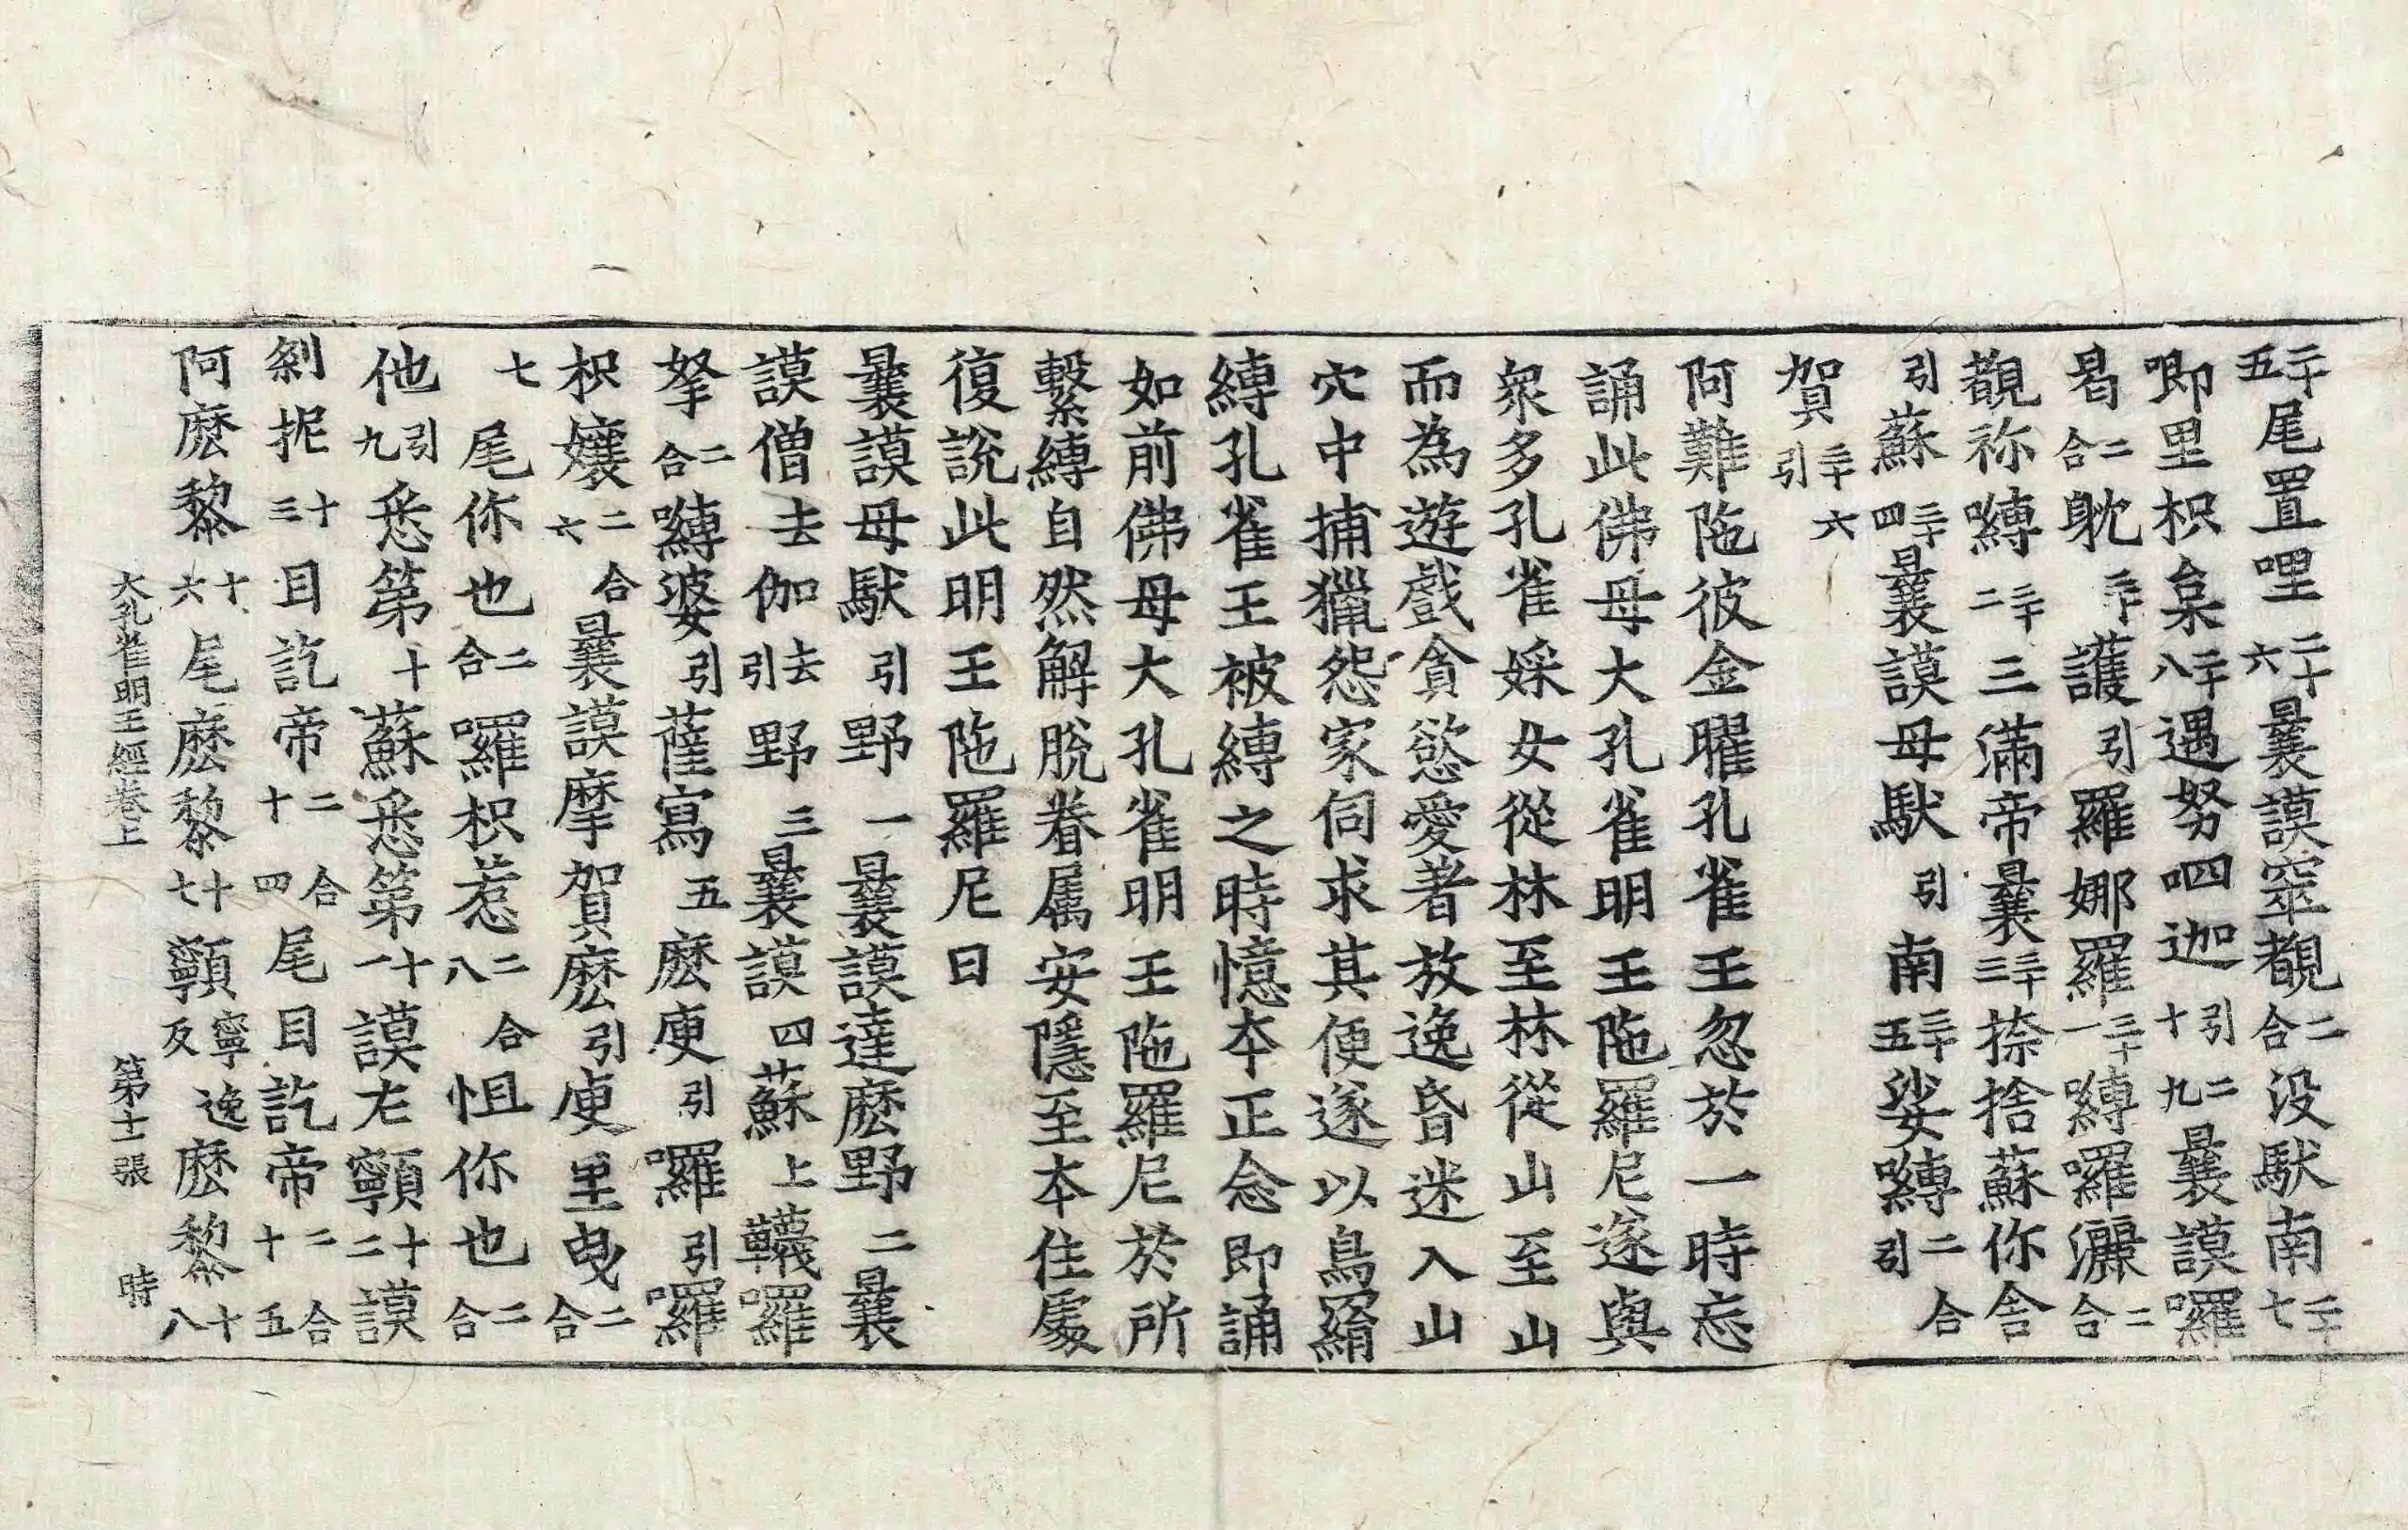 二十五尾置哩二十六曩謨窣覩二合沒馱南二十七
唧里枳枲二十八遇努呬迦引二十九曩謨囉
曷二合躭三十護引羅娜羅三十一嚩囉灑二合
覩祢嚩三十二三滿帝曩三十三捺捨蘇你舍
引蘇三十四曩謨母馱引南三十五娑嚩二合引
賀引三十六
阿難陁彼金曜孔雀王忽於一時忘
誦此佛母大孔雀明王陁羅尼遂與
衆多孔雀婇女從林至林從山至山
而為遊戲貪慾愛著放逸昏迷入山
穴中捕獵怨家伺求其便遂以鳥羂
縛孔雀王被縛之時憶本正念即誦
如前佛母大孔雀明王陁羅尼於所
繫縛自然解脫眷属安隱至本住處
復說此明王陁羅尼曰
曩謨母馱引野一曩謨達麽野二曩
謨僧去伽去引野三曩謨四蘇上韈囉
拏二合嚩婆引薩寫五麽庾引囉引囉
枳孃二合六曩謨摩賀麽引庾里曳二合
七尾你也二合囉枳惹二合八怛你也二合
他引九悉第十蘇悉第十一謨左顊十二謨
剎抳十三目訖帝二合十四尾目訖帝二合十五
阿麽黎十六尾麽黎十七顊寧逸反麽黎十八
大孔雀明王經卷上 第十二張 時